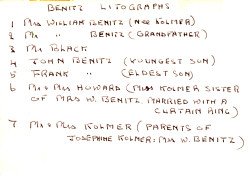 BENITZ LITOGRAPHS
1 MRS WILLIAM BENITZ (NEE KOLMER)
2 MR " BENITZ (GRANDFATHER)
3 MR BLACK
4 JOHN BENITZ (YOUNGEST SON)
5 FRANK " (ELDEST SON)
6 MR & MRS HOWARD (MISS KOLMER SISTER
OF MRS W. BENITZ. MARRIED WITH A
CURTAIN RING)
7 MR & MRS KOLMER (PARENTS OF
JOSEPHINE KOLMER: MRS W. BENITZ)